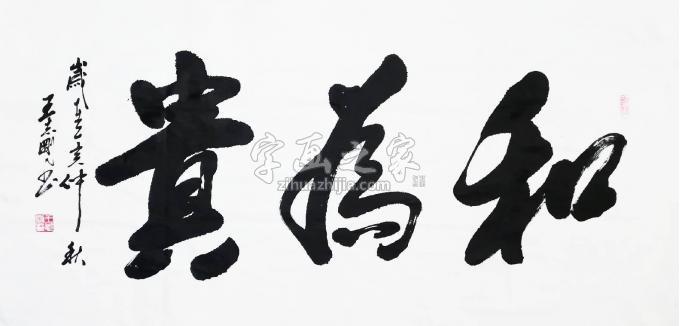 和為貴
歲在
仲秋
王志
書
字画之家
zihuazhijia.com